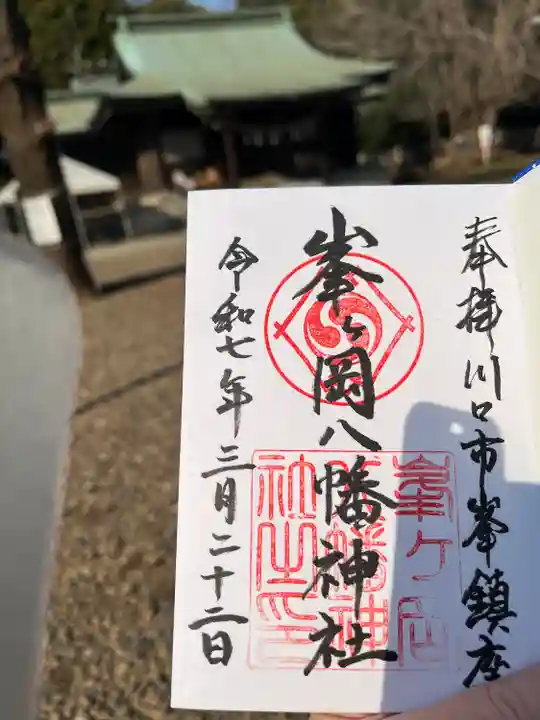 奉拝川口市峯鎮座
峯ヶ岡八幡神社
令和七年三月二十二日
峯ヶ岡
八幡神
社之印